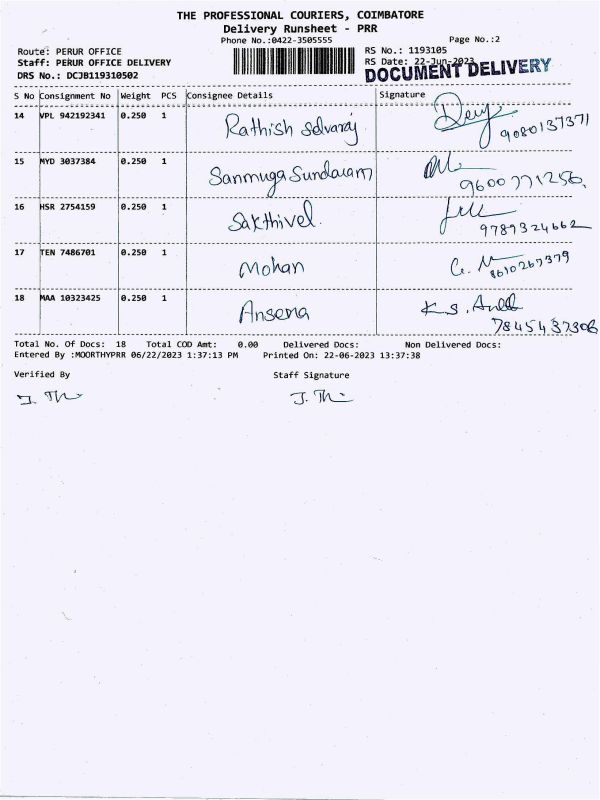 THE PROFESSIONAL COURIERS, COIMBATORE
Delivery Runsheet - PRR
Phone No.:0422-3505555 Page No.:2
Route: PERUR OFFICE RS No.: 1193105
Staff: PERUR OFFICE DELIVERY RS Date: 22-Jun-2023
DRS No.: DCJB119310502 DOCUMENT DELIVERY
S No Consignment No Weight PCS Consignee Details Signature
14 VPL 942192341 0.250 1 Rathish Selvaraj 9080137371
15 MYD 3037384 0.250 1 Sanmuga Sundaram 9600771256
16 HSR 2754159 0.250 1 Sakthivel 9789324662
17 TEN 7486701 0.250 1 Mohan 8610267379
18 MAA 10323425 0.250 1 Ansena K.S. 7845437306
Total No. Of Docs: 18 Total COD Amt: 0.00 Delivered Docs: Non Delivered Docs:
Entered By :MOORTHYPRR 06/22/2023 1:37:13 PM Printed On: 22-06-2023 13:37:38
Verified By Staff Signature